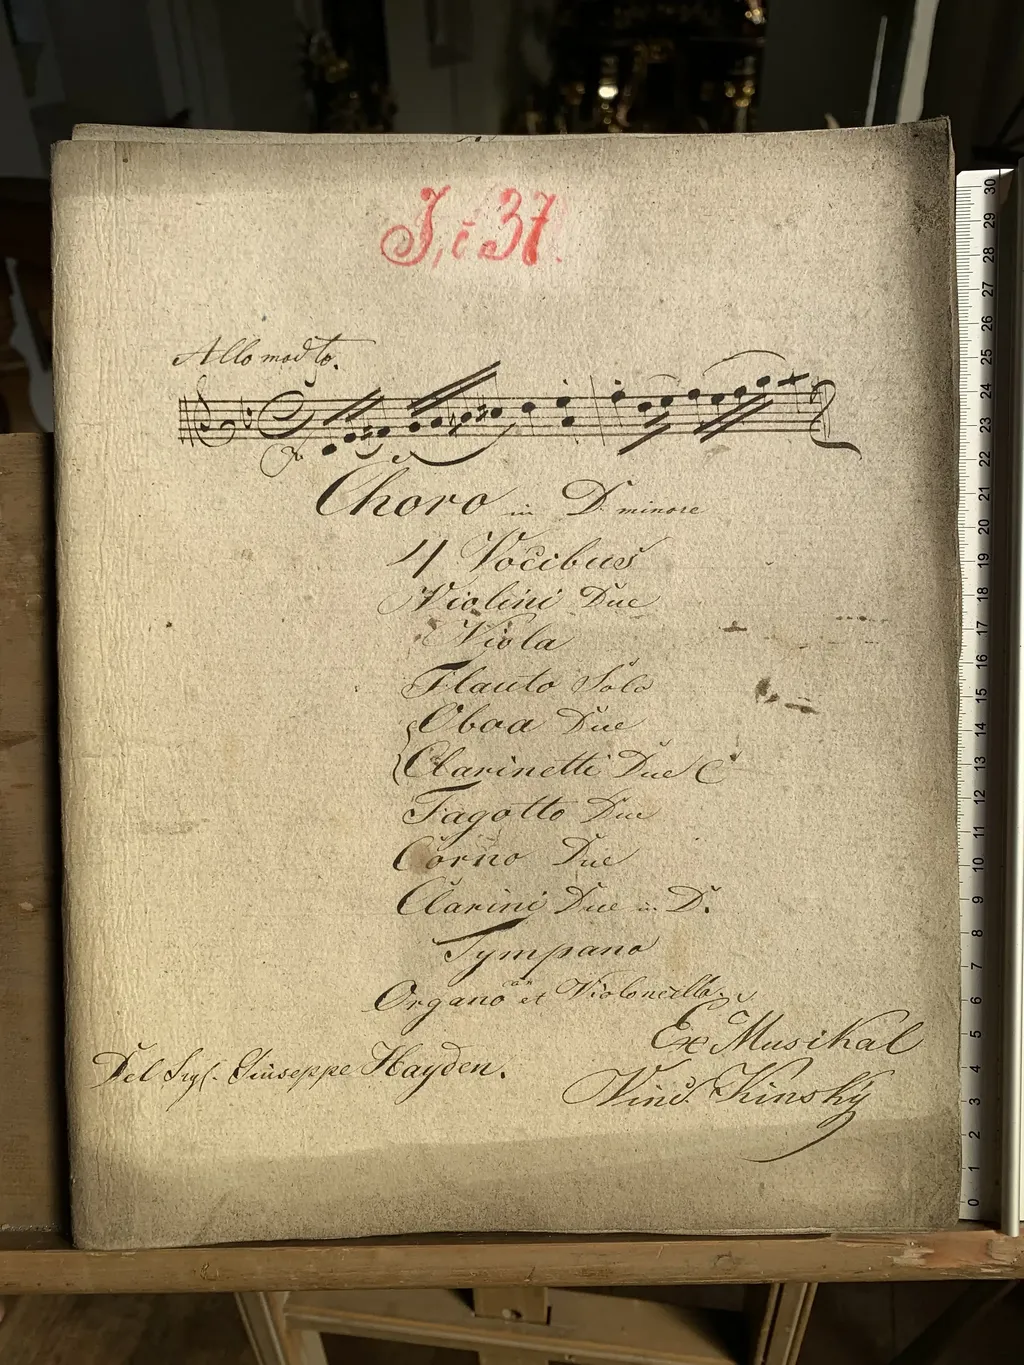 J. č. 37.
Allo modto.
Choro in D minore
4 Vocibus
Violini Due
Viola
Flauto Solo
Oboa Due
Clarinetti Due C
Fagotto Due
Corno Due
Clarini Due in D.
Tympano
Organo et Violoncello.
Ex Musikal
Del Sigl. Giuseppe Hayden.
Vinc. Kinský
30
29
28
27
26
25
24
23
22
21
20
19
18
17
16
15
14
13
12
11
10
9
8
7
6
5
4
3
2
1
0